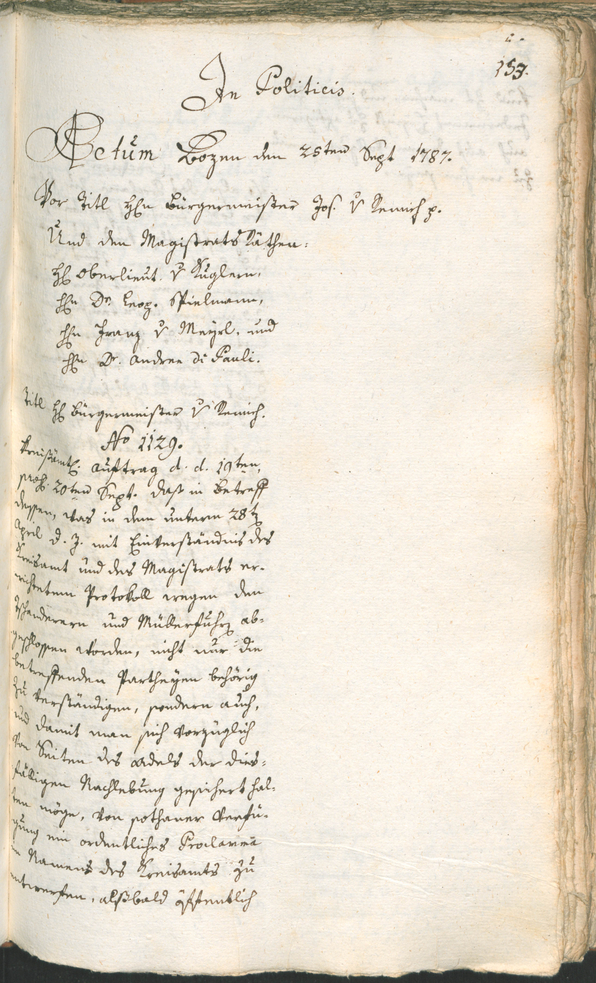 153.
In Politicis.
Actum Bozen den 25ten Sept 1787.
Vor Titl Hhn Bürgermeister Jos. v Remich p.
Und den Magistrats Räthen:
Hh Oberlieut. v Kuglern,
Hhn Dr. Leop. Spielmann,
Hhn Franz v. Meyrl, und
Hhn Dr. Andree di Pauli.
Titl Hh Bürgermeister v Remich.
No 1129.
Kreisämtl. Auftrag d. d. 19ten,
pros. 20ten Sept. daß in Betreff
dessen, was in dem unterm 28t
April d. J. mit Einverständnis des
Kreisamt und des Magistrats er-
richtetem Protokoll wegen den
und ab-
geschlossen worden, nicht nur die
betreffenden Partheyen behörig
zu verständigen, sondern auch,
und damit man sich vorzüglich
von Seiten des Adels der dies-
fälligen Nachlebung gesichert hal-
ten möge, von sothaner Verfü-
gung ein ordentliches Proclama
im Namens des Kreisamts zu
entwerfen, alsbald öffentlich